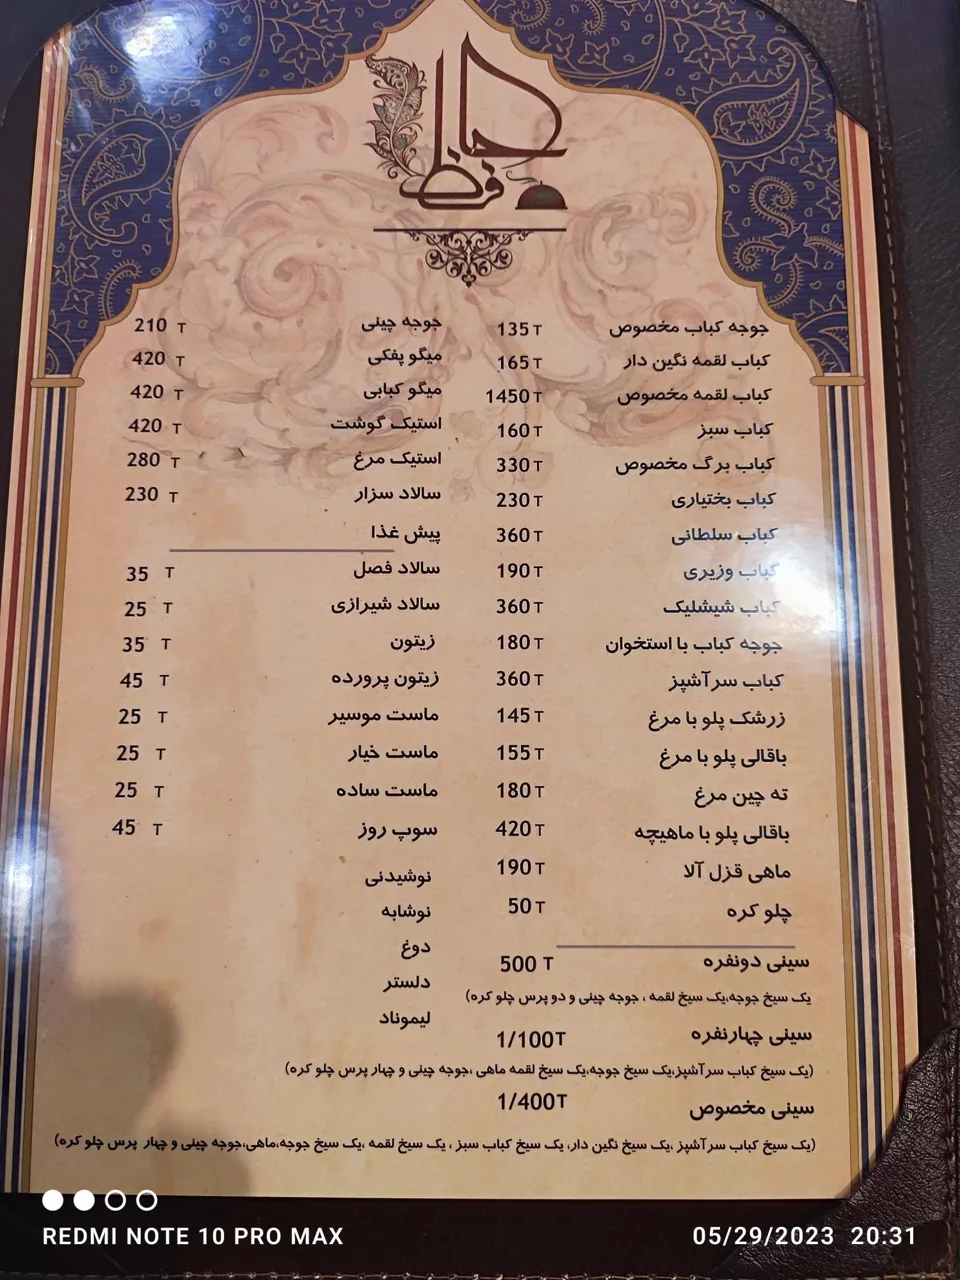 حافظ
جوجه کباب مخصوص 135 T
کباب لقمه نگین دار 165 T
کباب لقمه مخصوص 1450 T
کباب سبز 160 T
کباب برگ مخصوص 330 T
کباب بختیاری 230 T
کباب سلطانی 360 T
کباب وزیری 190 T
کباب شیشلیک 360 T
جوجه کباب با استخوان 180 T
کباب سرآشپز 360 T
زرشک پلو با مرغ 145 T
باقالی پلو با مرغ 155 T
ته چین مرغ 180 T
باقالی پلو با ماهیچه 420 T
ماهی قزل آلا 190 T
چلو کره 50 T
جوجه چینی 210 T
میگو پفکی 420 T
میگو کبابی 420 T
استیک گوشت 420 T
استیک مرغ 280 T
سالاد سزار 230 T
پیش غذا
سالاد فصل 35 T
سالاد شیرازی 25 T
زیتون 35 T
زیتون پرورده 45 T
ماست موسیر 25 T
ماست خیار 25 T
ماست ساده 25 T
سوپ روز 45 T
نوشیدنی
نوشابه
دوغ
دلستر
لیموناد
سینی دونفره 500 T
یک سیخ جوجه،یک سیخ لقمه ، جوجه چینی و دو پرس چلو کره)
سینی چهارنفره 1/100T
(یک سیخ کباب سرآشپز،یک سیخ جوجه،یک سیخ لقمه ماهی ،جوجه چینی و چهار پرس چلو کره)
سینی مخصوص 1/400T
(یک سیخ کباب سرآشپز ،یک سیخ نگین دار، یک سیخ کباب سبز ، یک سیخ لقمه ،یک سیخ جوجه،ماهی،جوجه چینی و چهار پرس چلو کره)
REDMI NOTE 10 PRO MAX
05/29/2023 20:31